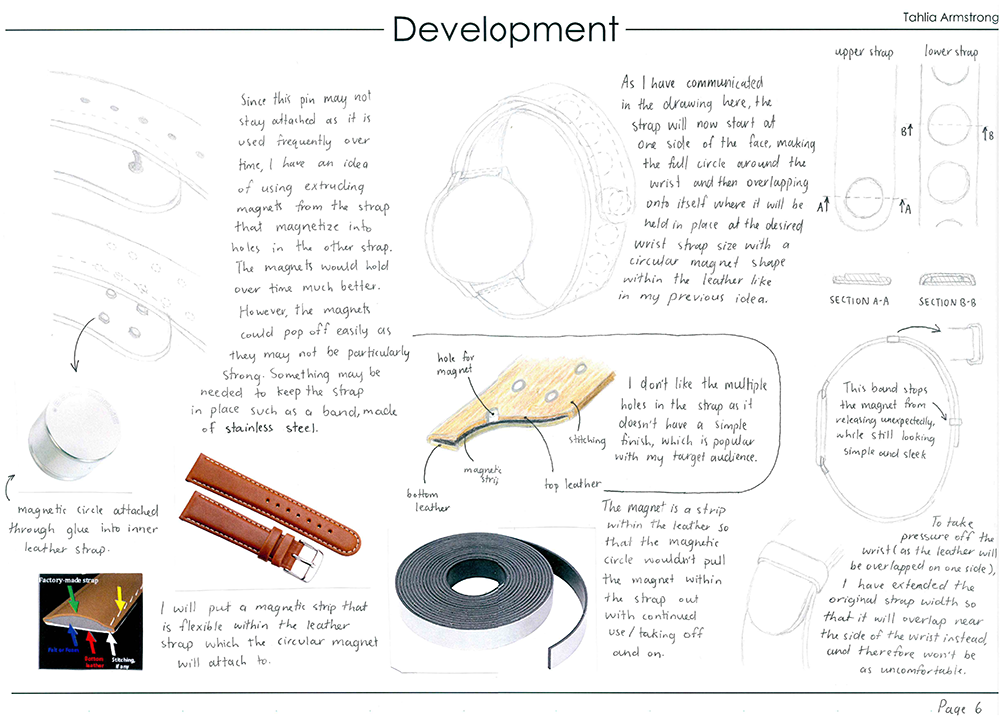 Development
Tahlia Armstrong
Since this pin may not
stay attached as it is
used frequently over
time, I have an idea
of using extruding
magnets from the strap
that magnetize into
holes in the other strap.
The magnets would hold
over time much better.
However, the magnets
could pop off easily as
they may not be particularly
strong. Something may be
needed to keep the strap
in place such as a band, made
of stainless steel.
magnetic circle attached
through glue into inner
leather strap.
Factory-made strap
Felt or foam,
Bottom
leather
Stitching,
if any
I will put a magnetic strip that
is flexible within the leather
strap which the circular magnet
will attach to.
As I have communicated
in the drawing here, the
strap will now start at
one side of the face, making
the full circle around the
wrist and then overlapping
onto itself where it will be
held in place at the desired
wrist strap size with a
circular magnet shape
within the leather like
in my previous idea.
hole for
magnet
stitching
magnetic
strip
top leather
bottom
leather
I don't like the multiple
holes in the strap as it
doesn't have a simple
finish, which is popular
with my target audience.
The magnet is a strip
within the leather so
that the magnetic
circle wouldn't pull
the magnet within
the strap out
with continued
use/taking off
and on.
upper strap
lower strap
A A
B B
SECTION A-A
SECTION B-B
This band stops
the magnet from
releasing unexpectedly,
while still looking
simple and sleek
To take
pressure off the
wrist (as the leather will
be overlapped on one side),
I have extended the
original strap width so
that it will overlap near
the side of the wrist instead,
and therefore won't be
as uncomfortable.
Page 6